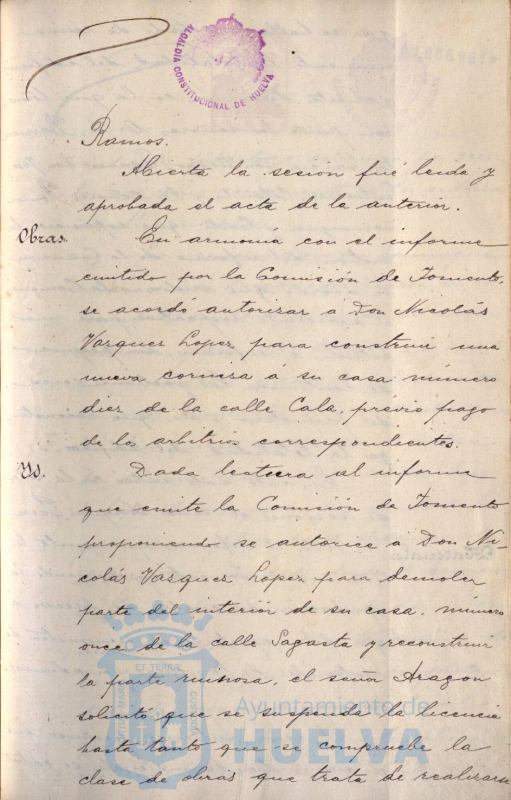 ALCALDIA CONSTITUCIONAL DE HUELVA
Ramos.
Abierta la sesión fué leida y
aprobada el acta de la anterior.
Obras.
En armonía con el informe
emitido por la Comisión de Fomento,
se acordó autorizar á Don Nicolás
Vazquez Lopez para construir una
nueva cornisa á su casa número
diez de la calle Cala, previo pago
de los arbitrios correspondientes.
Yd.
Dada lectura al informe
que emite la Comisión de Fomento
proponiendo se autorice á Don Ni-
colás Vazquez Lopez para demoler
parte del interior de su casa, número
once de la calle Sagasta y reconstruir
la parte ruinosa, el señor Aragon
solicitó que se suspenda la licencia
hasta tanto que se compruebe la
clase de obras que trata de realizarse
Ayuntamiento de
HUELVA